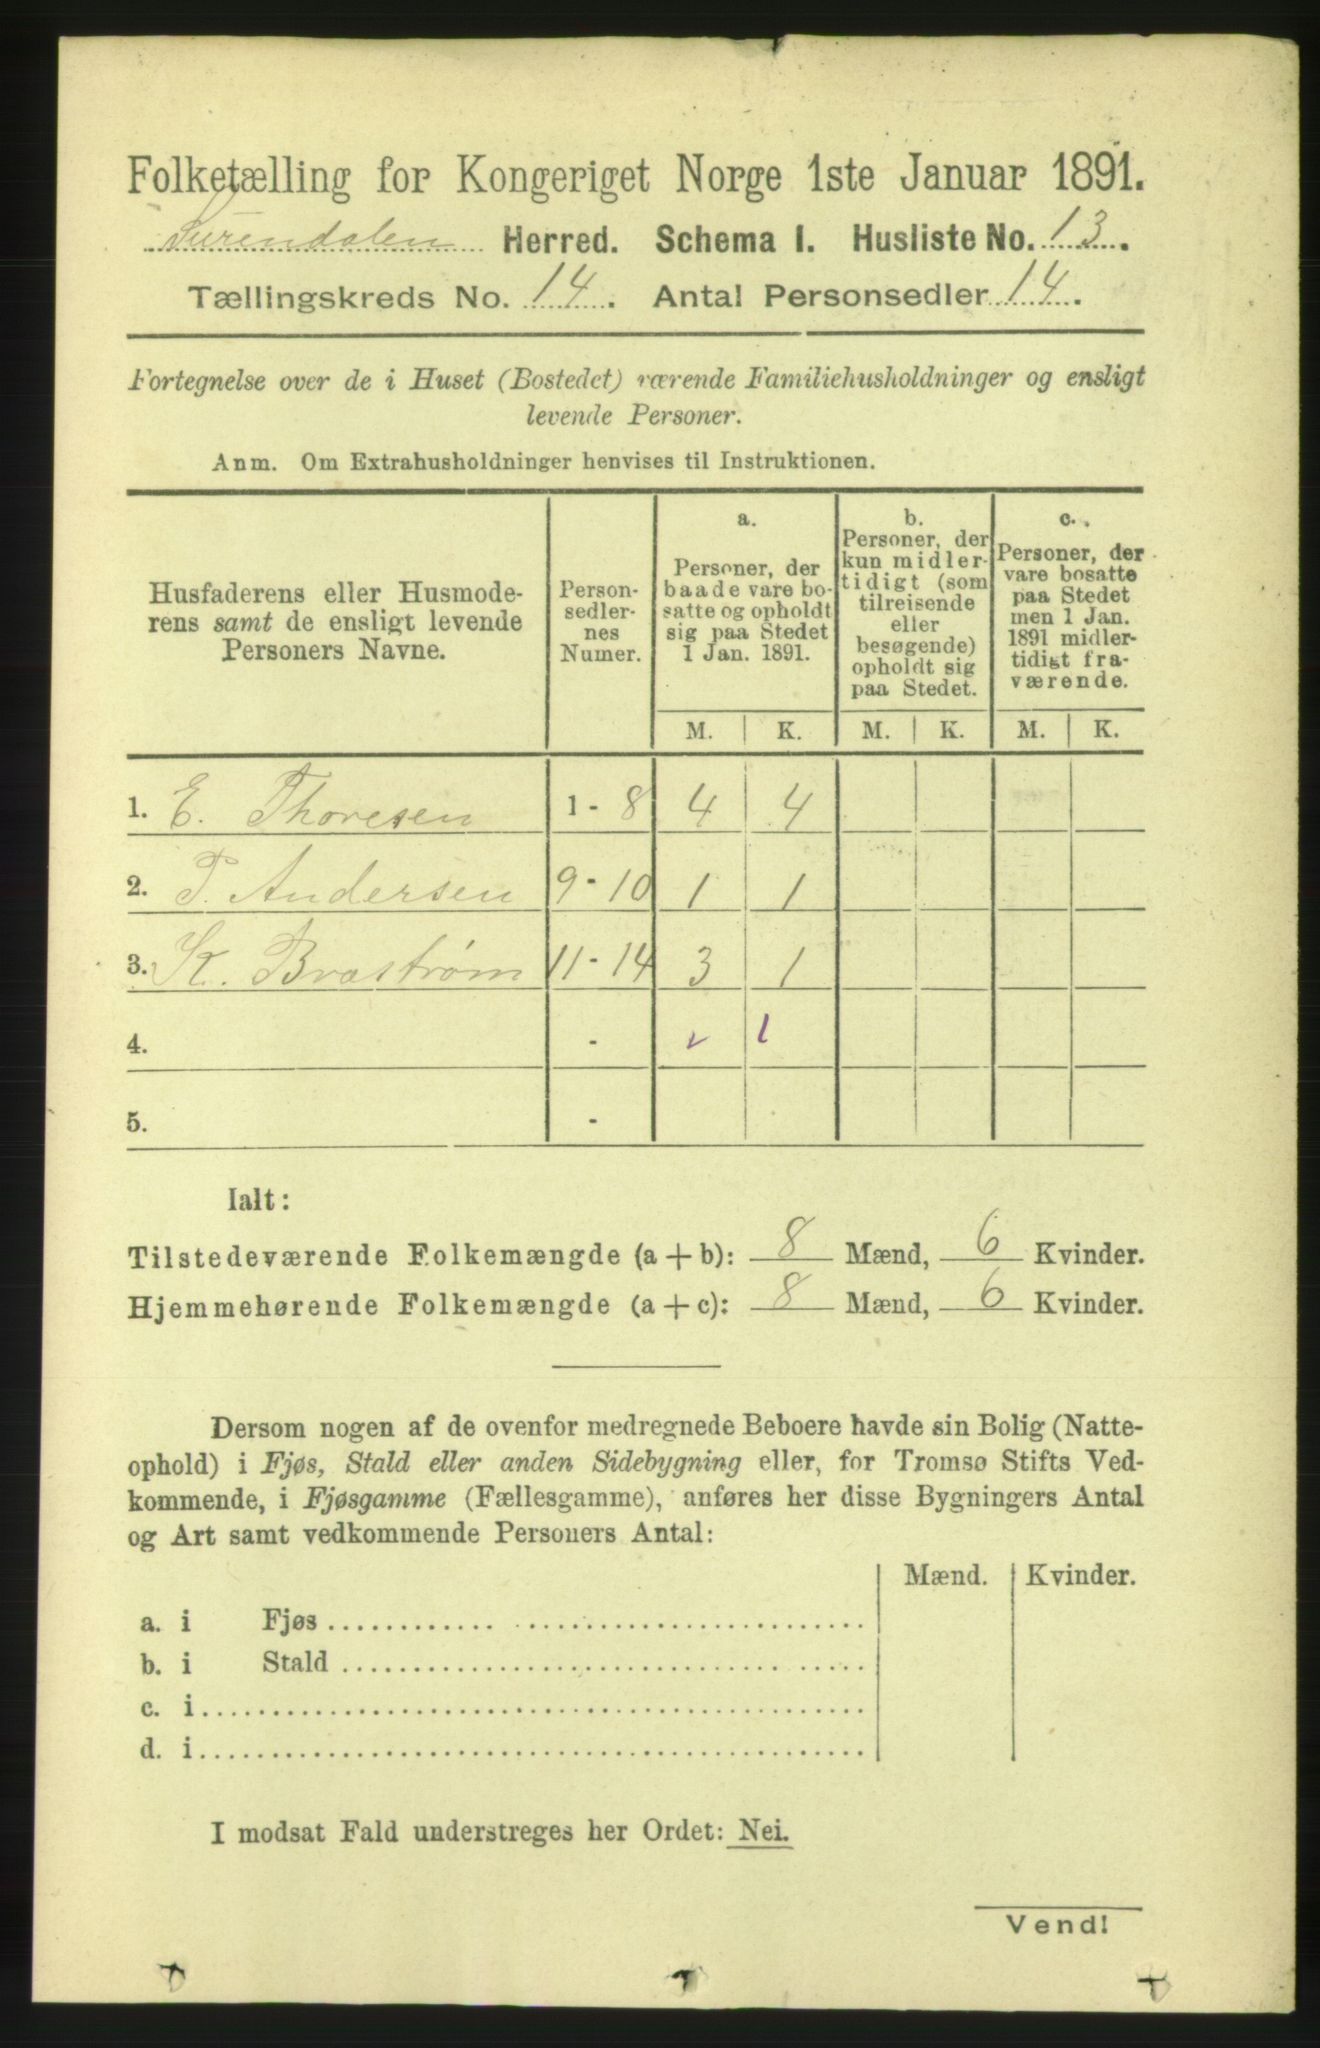 Folketælling for Kongeriget Norge 1ste Januar 1891.
Surendalen Herred. Schema I. Husliste No. 13.
Tællingskreds No. 14. Antal Personsedler 14.
Fortegnelse over de i Huset (Bostedet) værende Familiehusholdninger og ensligt
levende Personer.
Anm. Om Extrahusholdninger henvises til Instruktionen.
Husfaderens eller Husmode-
rens samt de ensligt levende
Personers Navne.
Person-
sedler-
nes
Numer.
a.
Personer, der
baade vare bo-
satte og opholdt
sig paa Stedet
1 Jan. 1891.
b.
Personer, der
kun midler-
tidigt (som
tilreisende
eller
besøgende)
opholdt sig
paa Stedet.
c.
Personer, der
vare bosatte
paa Stedet
men 1 Jan.
1891 midler-
tidigt fra-
værende.
M. K. M. K. M. K.
1. E. Thoresen 1 - 8 4 4
2. P. Andersen 9 - 10 1 1
3. K. Brøstrøm 11 - 14 3 1
4. - v 1
5. -
Ialt:
Tilstedeværende Folkemængde (a + b): 8 Mænd, 6 Kvinder.
Hjemmehørende Folkemængde (a + c): 8 Mænd, 6 Kvinder.
Dersom nogen af de ovenfor medregnede Beboere havde sin Bolig (Natte-
ophold) i Fjøs, Stald eller anden Sidebygning eller, for Tromsø Stifts Ved-
kommende, i Fjøsgamme (Fællesgamme), anføres her disse Bygningers Antal
og Art samt vedkommende Personers Antal:
Mænd. Kvinder.
a. i Fjøs
b. i Stald
c. i
d. i
I modsat Fald understreges her Ordet: Nei.
Vend!